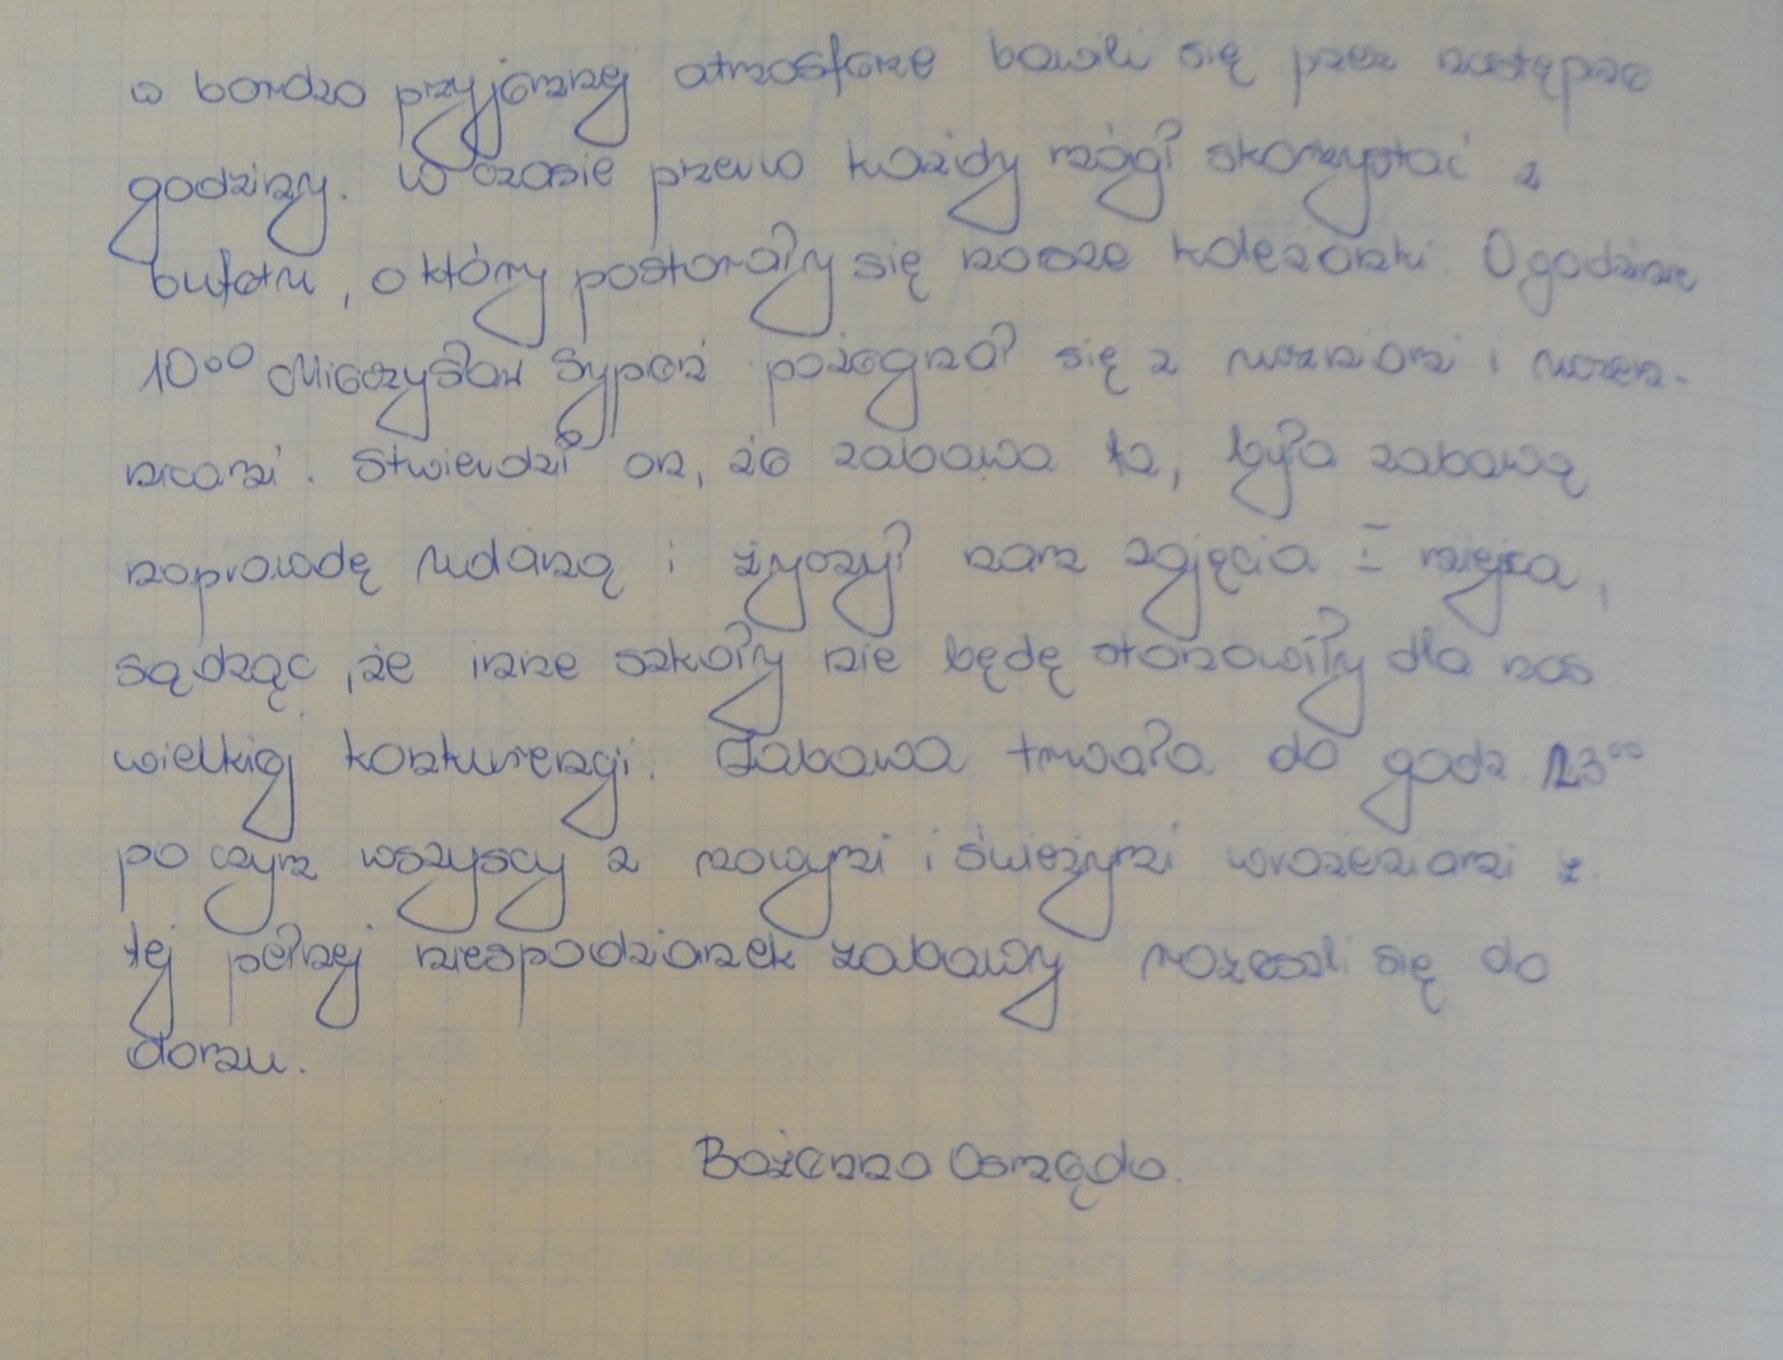 w bardzo przyjemnej atmosferze bawili się przez następne
godziny. W czasie przerw każdy mógł skorzystać z
bufetu, o który postarały się nasze koleżanki. O godzinie
10⁰⁰ Mieczysław Sypeń pożegnał się z uczniami i uczen-
nicami. Stwierdził on, że zabawa ta, była zabawą
naprawdę udaną i życzył nam zajęcia I miejsca,
sądząc, że inne szkoły nie będę stanowiły dla nas
wielkiej konkurencji. Zabawa trwała do godz 23⁰⁰
po czym wszyscy z nowymi i świeżymi wrażeniami z
tej pełnej niespodzianek zabawy rozeszli się do
domu.
Bożenna